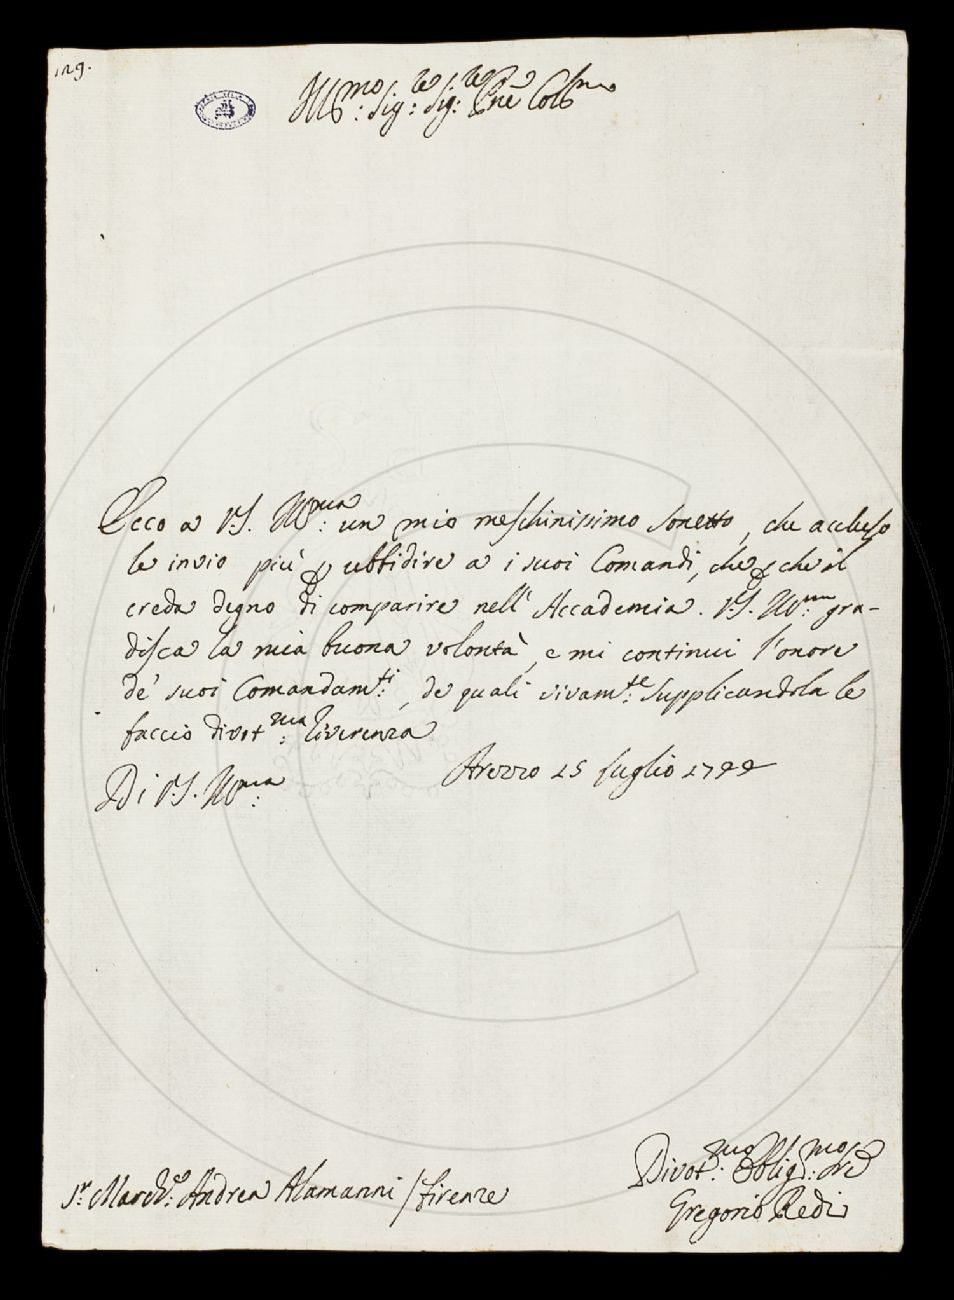 129.
Ill.mo Sig.re Sig.re P.rne Col.mo
Ecco a V.S. Ill.ma un mio meschinissimo Sonetto, che accluso
le invio più p ubbidire a i suoi Comandi, che p che il
creda degno di comparire nell' Accademia. V.S. Ill.ma gra-
disca la mia buona volontà, e mi continui l'onore
de' suoi Comandam.ti, de quali vivam.te supplicandola le
faccio divot.ma riverenza
Di V.S. Ill.ma
Arezzo 15 Luglio 1744
Divot.mo Obblig.mo Sre
Gregorio Redi
S.r March.e Andrea Alamanni / Firenze